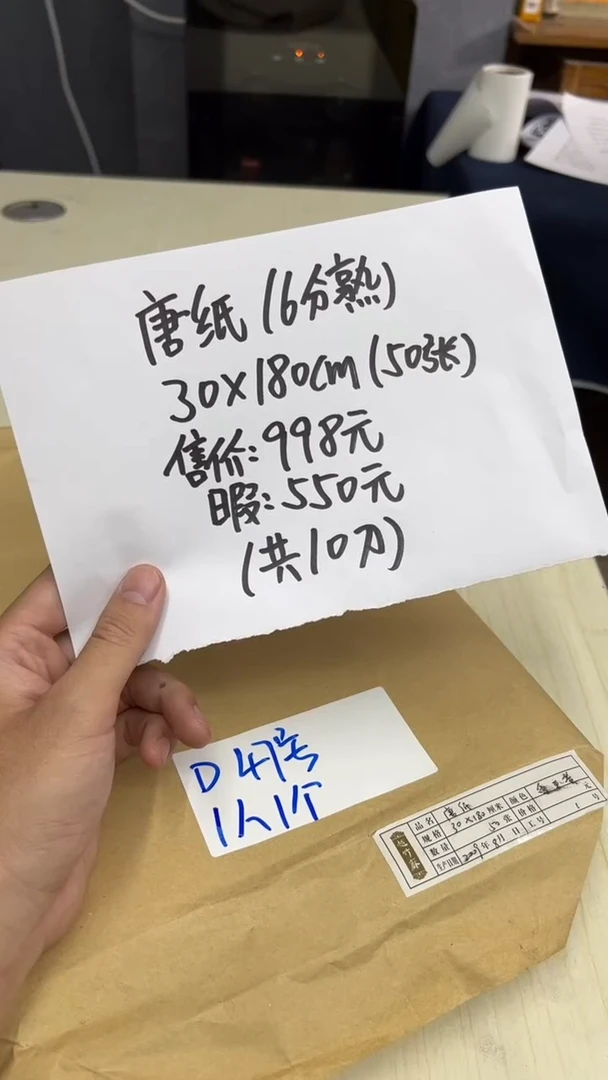 唐纸(16分熟)
30X180cm(50张)
售价:998元
暇:550元
(共10刀)
D47号
1人1个
品名 唐纸
规格 30×180 厘米 颜色
数量 50 张 价格 元
生产日期 年 月 日 工号 1 号